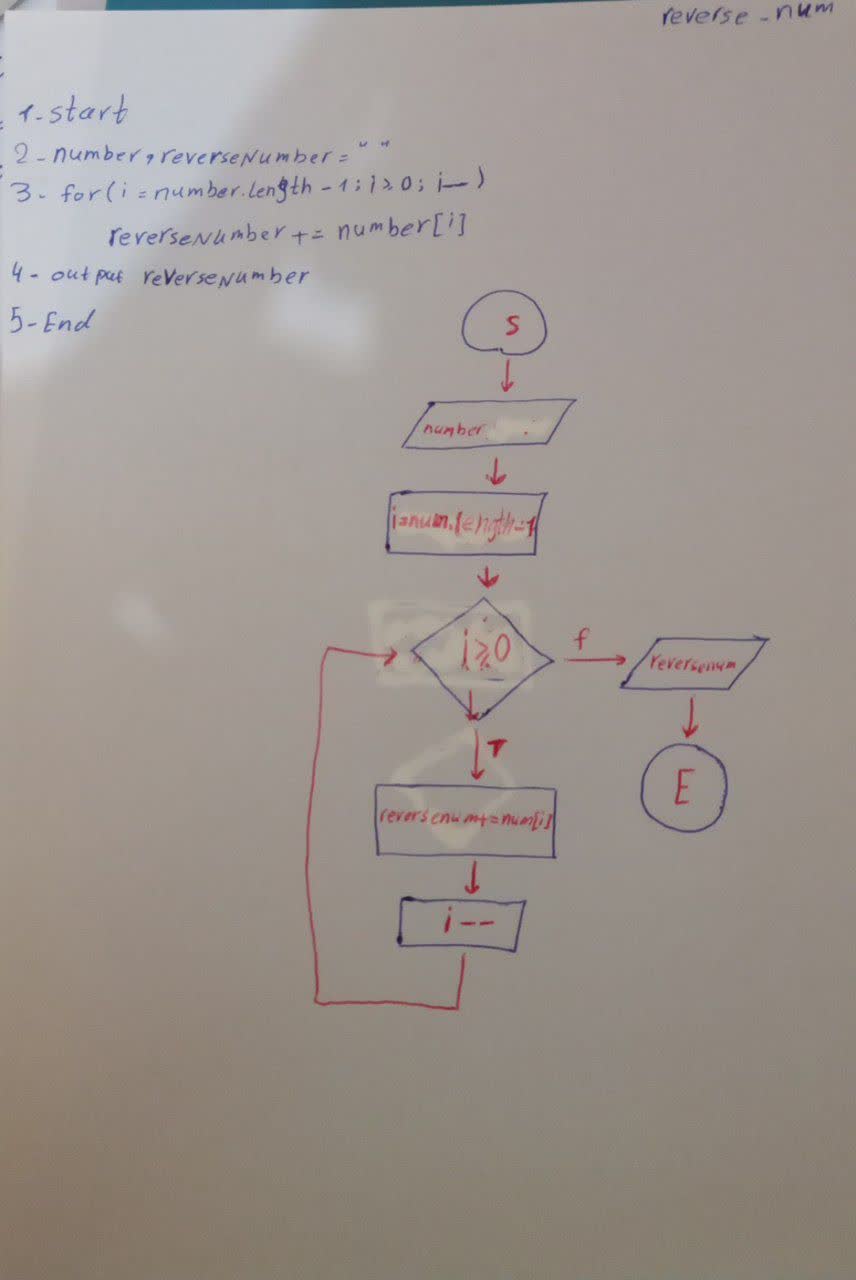 reverse_num
1-start
2-number, reverseNumber = " "
3- for(i = number.length - 1; i ≥ 0; i--)
reverseNumber += number[i]
4- output reverseNumber
5-End
S
number
i=num.length=1
i≥0
f
reversenum
T
E
reversenum+=num[i]
i--